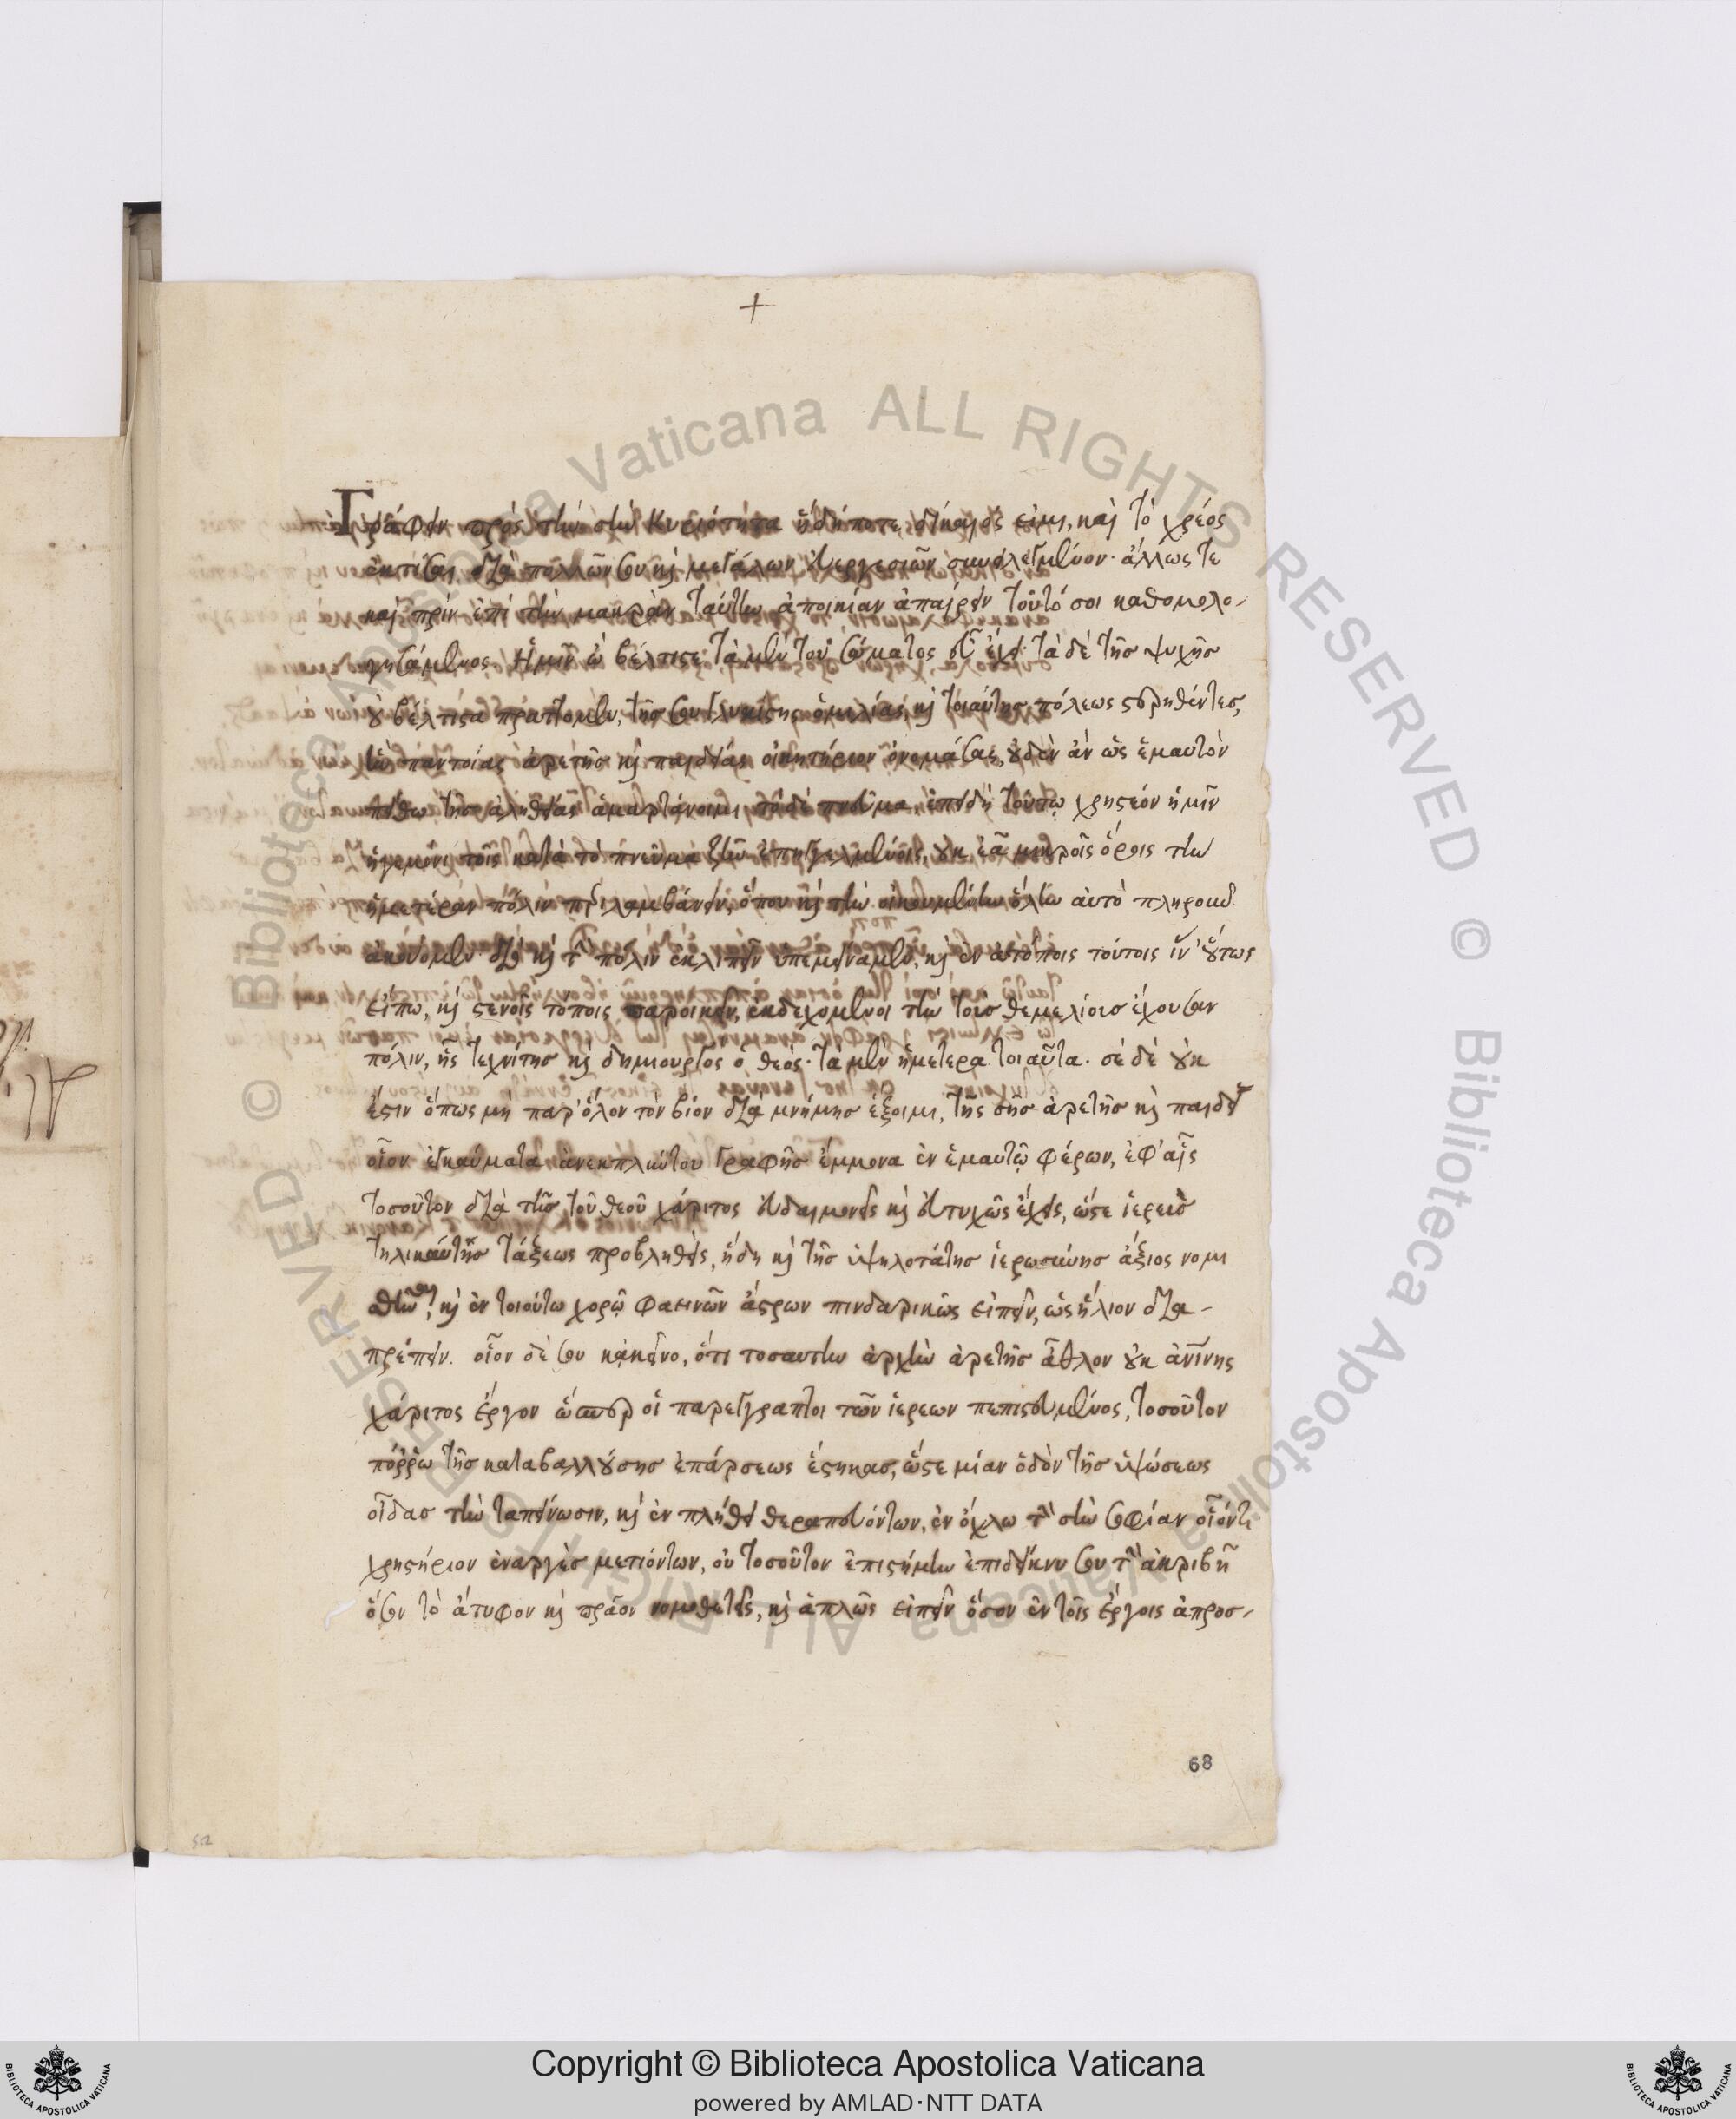 +
Γράφειν πρὸς τὴν σὴν Κυριότητα ἤδήποτε δίκαιός εἰμι, καὶ τὸ χρέος
ἐκτίσαι διὰ πολλῶν σου καὶ μεγάλων εὐεργεσιῶν συνειλεγμένον· ἄλλως τε
καὶ πρὶν ἐπὶ τὴν μακρὰν ταύτην ἀποικίαν ἀπαίρειν τοῦτό σοι καθομολο-
γησάμενος. Ἡμῖν ὦ βέλτιστε τὰ μὲν τοῦ σώματος εὖ ἔχει· τὰ δὲ τῆς ψυχῆς
οὐ βέλτιστα πράττομεν, τῆς σου γλυκίστης ὁμιλίας καὶ τοιαύτης πόλεως στερηθέντες,
ἣν παντοίας ἀρετῆς καὶ παιδείας οἰκητήριον ὀνομάσας, οὐδὲν ἂν ὡς ἐμαυτὸν
πείθω τῆς ἀληθείας ἁμαρτάνοιμι τὸ δὲ πνεῦμα, ἐπειδὴ τούτῳ χρηστέον ἡμῖν
ἡγεμόνι τοῖς κατὰ τὸ πνεῦμα ζῆν ἐπηγγελμένοις, οὐκ ἐᾷ μικροῖς ὅροις τὴν
ἡμετέραν πόλιν περιλαμβάνειν, ὅπου καὶ τὴν οἰκουμένην ὅλην αὐτὸ πληροῦν
ἀκούομεν διὸ καὶ τὴν πόλιν ἐκλιπεῖν ὑπεμείναμεν, καὶ ἐν ἀτόποις τούτοις ἵν' οὕτως
εἴπω, καὶ στενοῖς τόποις παροικεῖν, ἐκδεχόμενοι τὴν τοὺς θεμελίους ἔχουσαν
πόλιν, ἧς τεχνίτης καὶ δημιουργὸς ὁ θεός· τὰ μὲν ἡμέτερα τοιαῦτα. σὲ δὲ οὐκ
ἔστιν ὅπως μὴ παρ' ὅλον τὸν βίον διὰ μνήμης ἕξοιμι, τῆς σῆς ἀρετῆς καὶ παιδείας
οἷον ἐγκαύματα ἀνεκπλύτου γραφῆς ἔμμονα ἐν ἐμαυτῷ φέρων, ἐφ' αἷς
τοσοῦτον διὰ τῆς τοῦ θεοῦ χάριτος εὐδαιμονεῖς καὶ εὐτυχῶς ἔχεις, ὥστε ἱερεὺς
τηλικαύτης τάξεως προβληθείς, ἤδη καὶ τῆς ὑψηλοτάτης ἱερωσύνης ἄξιος νομι
σθῆναι, καὶ ἐν τοιούτῳ χορῷ φαεινῶν ἄστρων πινδαρικῶς εἰπεῖν, ὡς ἥλιον δια-
πρέπειν. οἷον δέ σου κἀκεῖνο, ὅτι τοσαύτην ἀρχὴν ἀρετῆς ἆθλον οὐκ ἀγεννής
χάριτος ἔργον ὥσπερ οἱ παρέγγραπτοι τῶν ἱερέων πεπιστευμένος, τοσοῦτον
πόρρω τῆς καταβαλλούσης ἐπάρσεως ἕστηκας, ὥστε μίαν ὁδὸν τῆς ὑψώσεως
οἶδας τὴν ταπείνωσιν, καὶ ἐν πλήθει θεραπευόντων, ἐν ὄχλῳ τὴν σὴν σοφίαν οἷόν τι
χρηστήριον ἐναργὲς μετιόντων, οὐ τοσοῦτον ἐπιστήμην ἐπιδείκνυσαι τὴν ἀκριβῆ
ὅσον τὸ ἄτυφον καὶ πρᾶον νομοθετεῖς, καὶ ἁπλῶς εἰπεῖν ὅσον ἐν τοῖς ἔργοις ἀπροσ-
68
52
Copyright © Biblioteca Apostolica Vaticana
powered by AMLAD·NTT DATA
© Biblioteca Apostolica Vaticana ALL RIGHTS RESERVED © Biblioteca Apostolica Vaticana ALL RIGHTS RESERVED
BIBLIOTECA APOSTOLICA VATICANA
BIBLIOTECA APOSTOLICA VATICANA